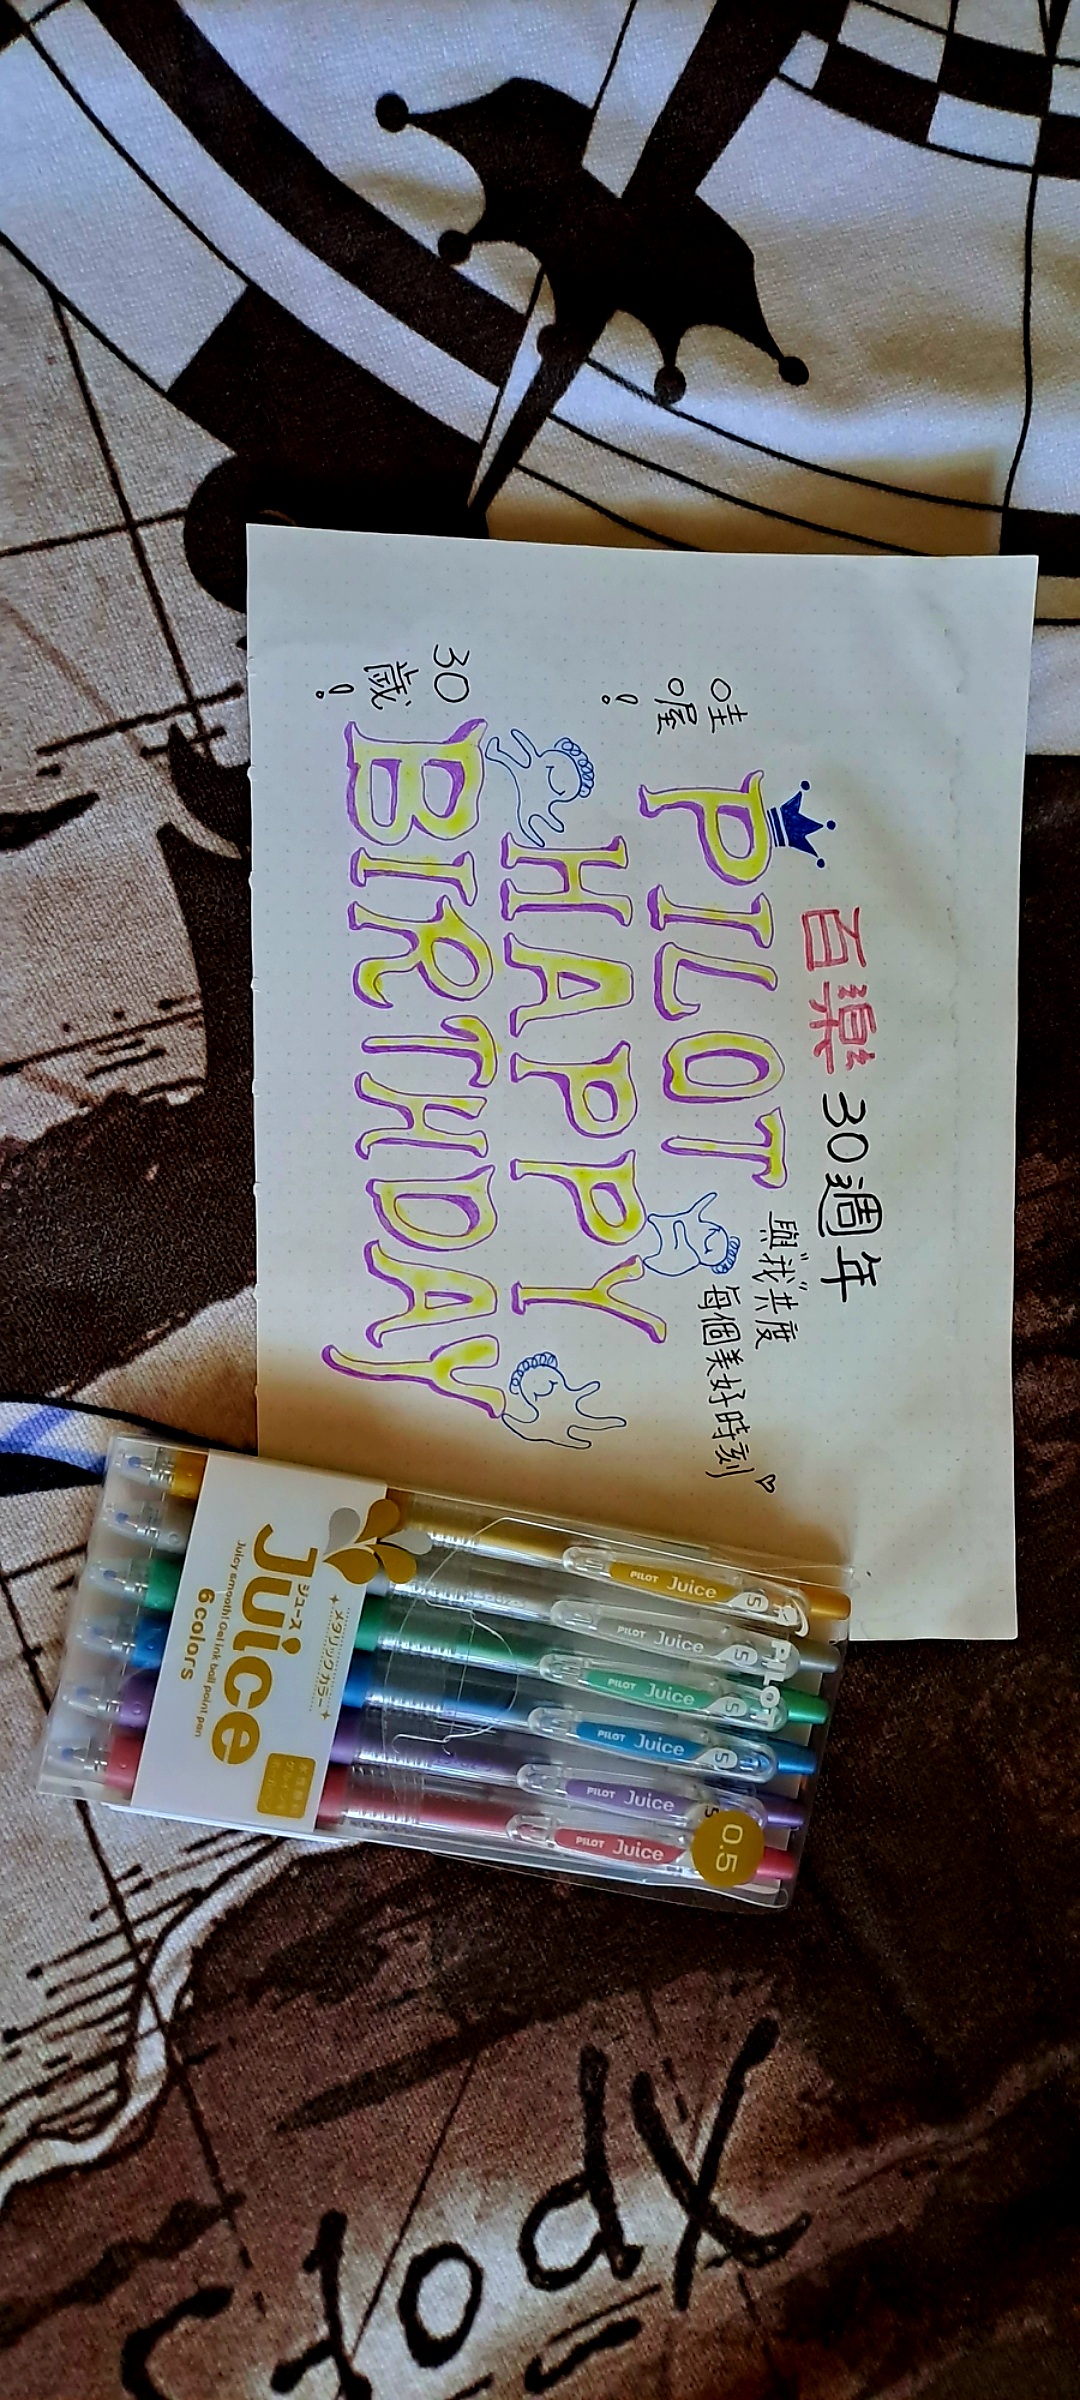 百樂 30週年
與"我"共度
每個美好時刻♡
哇
喔!
PILOT
HAPPY
30
歲!
BIRTHDAY
PILOT Juice 5
PILOT Juice 5
PILOT Juice 5
PILOT Juice 5
PILOT Juice 5
PILOT Juice
PILOT
0.5
メタリックカラー
ジュース
Juice
Juicy smooth! Gel ink ball point pen
6colors